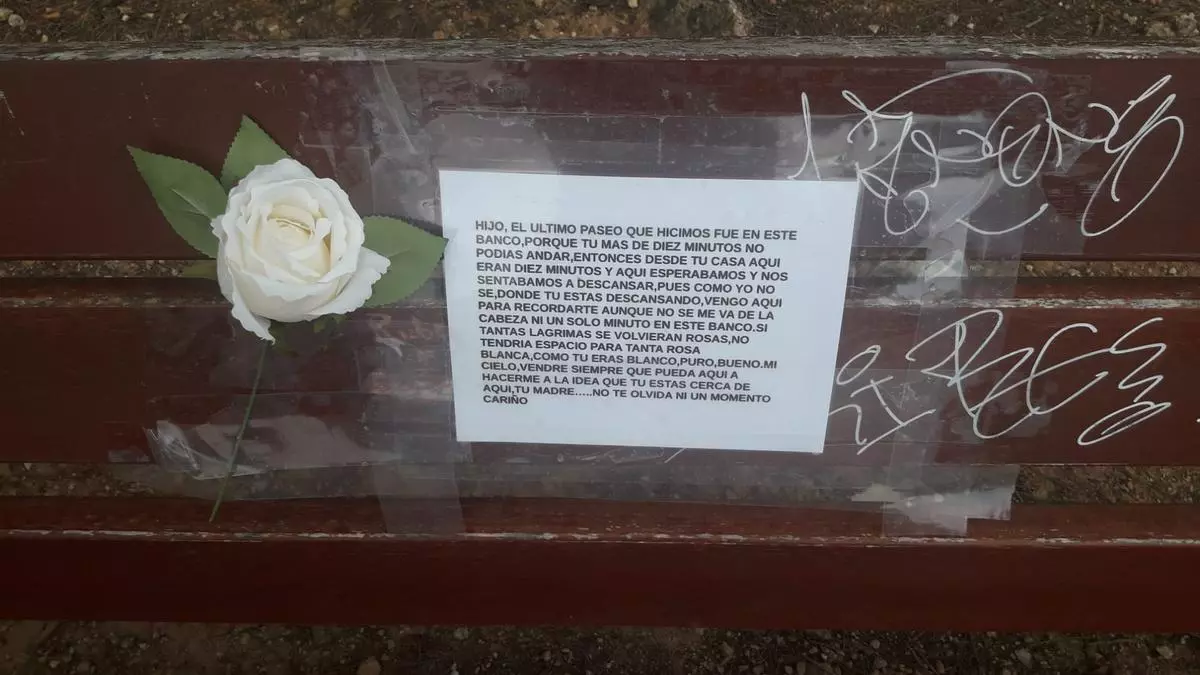 HIJO, EL ULTIMO PASEO QUE HICIMOS FUE EN ESTE
BANCO,PORQUE TU MAS DE DIEZ MINUTOS NO
PODIAS ANDAR,ENTONCES DESDE TU CASA AQUI
ERAN DIEZ MINUTOS Y AQUI ESPERABAMOS Y NOS
SENTABAMOS A DESCANSAR,PUES COMO YO NO
SE,DONDE TU ESTAS DESCANSANDO,VENGO AQUI
PARA RECORDARTE AUNQUE NO SE ME VA DE LA
CABEZA NI UN SOLO MINUTO EN ESTE BANCO.SI
TANTAS LAGRIMAS SE VOLVIERAN ROSAS,NO
TENDRIA ESPACIO PARA TANTA ROSA
BLANCA,COMO TU ERAS BLANCO,PURO,BUENO.MI
CIELO,VENDRE SIEMPRE QUE PUEDA AQUI A
HACERME A LA IDEA QUE TU ESTAS CERCA DE
AQUI,TU MADRE.....NO TE OLVIDA NI UN MOMENTO
CARIÑO